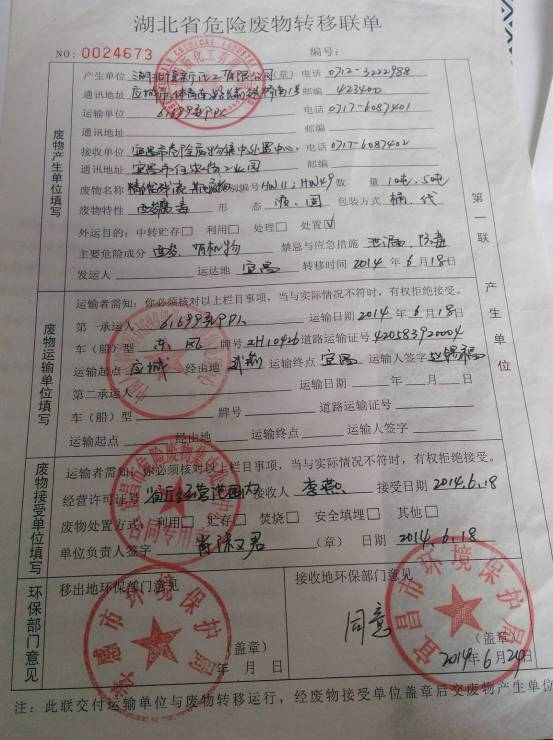 湖北省危险废物转移联单
NO: 0024673 编号:
废物产生单位填写
产生单位 (章) 电话 0712-3222988
通讯地址 应城市 邮编 423400
运输单位 61699部队 电话 0717-6087401
通讯地址 邮编
接收单位 宜昌市危险废物集中处置中心 电话 0717-6087402
通讯地址 宜昌市 邮编
废物名称 编号 HW11; HW49 数 量 10吨, 50吨
废物特性 毒 形 态 液、固 包装方式 桶、代
外运目的: 中转贮存□ 利用□ 处理□ 处置☑
主要危险成分 有机物 禁忌与应急措施 泄漏、防毒
发运人 运达地 宜昌 转移时间 2014 年 6 月 18 日
废物运输单位填写
运输者需知: 你必须核对以上栏目事项, 当与实际情况不符时, 有权拒绝接受。
第一承运人 61699部队 运输日期 2014 年 6 月 18 日
车(船)型 东风 牌号 ZH10426 道路运输证号 420583920004
运输起点 应城 经由地 运输终点 宜昌 运输人签字
第二承运人 运输日期 年 月 日
车(船)型 牌号 道路运输证号
运输起点 经由地 运输终点 运输人签字
废物接受单位填写
运输者需知: 你必须核对以上栏目事项, 当与实际情况不符时, 有权拒绝接受。
经营许可证号 接收人 李燕 接受日期 2014.6.18
废物处置方式: 利用□ 贮存□ 焚烧□ 安全填埋□ 其他□
单位负责人签字 (章) 日期 2014.6.18
环保部门意见
移出地环保部门意见
(盖章)
年 月 日
接收地环保部门意见
同意
(盖章)
2014 年 6 月 24 日
宜昌市环境保护局
市环境保护局
合同专用章
第一联 产生单位
注: 此联交付运输单位与废物转移运行, 经废物接受单位盖章后交废物产生单位